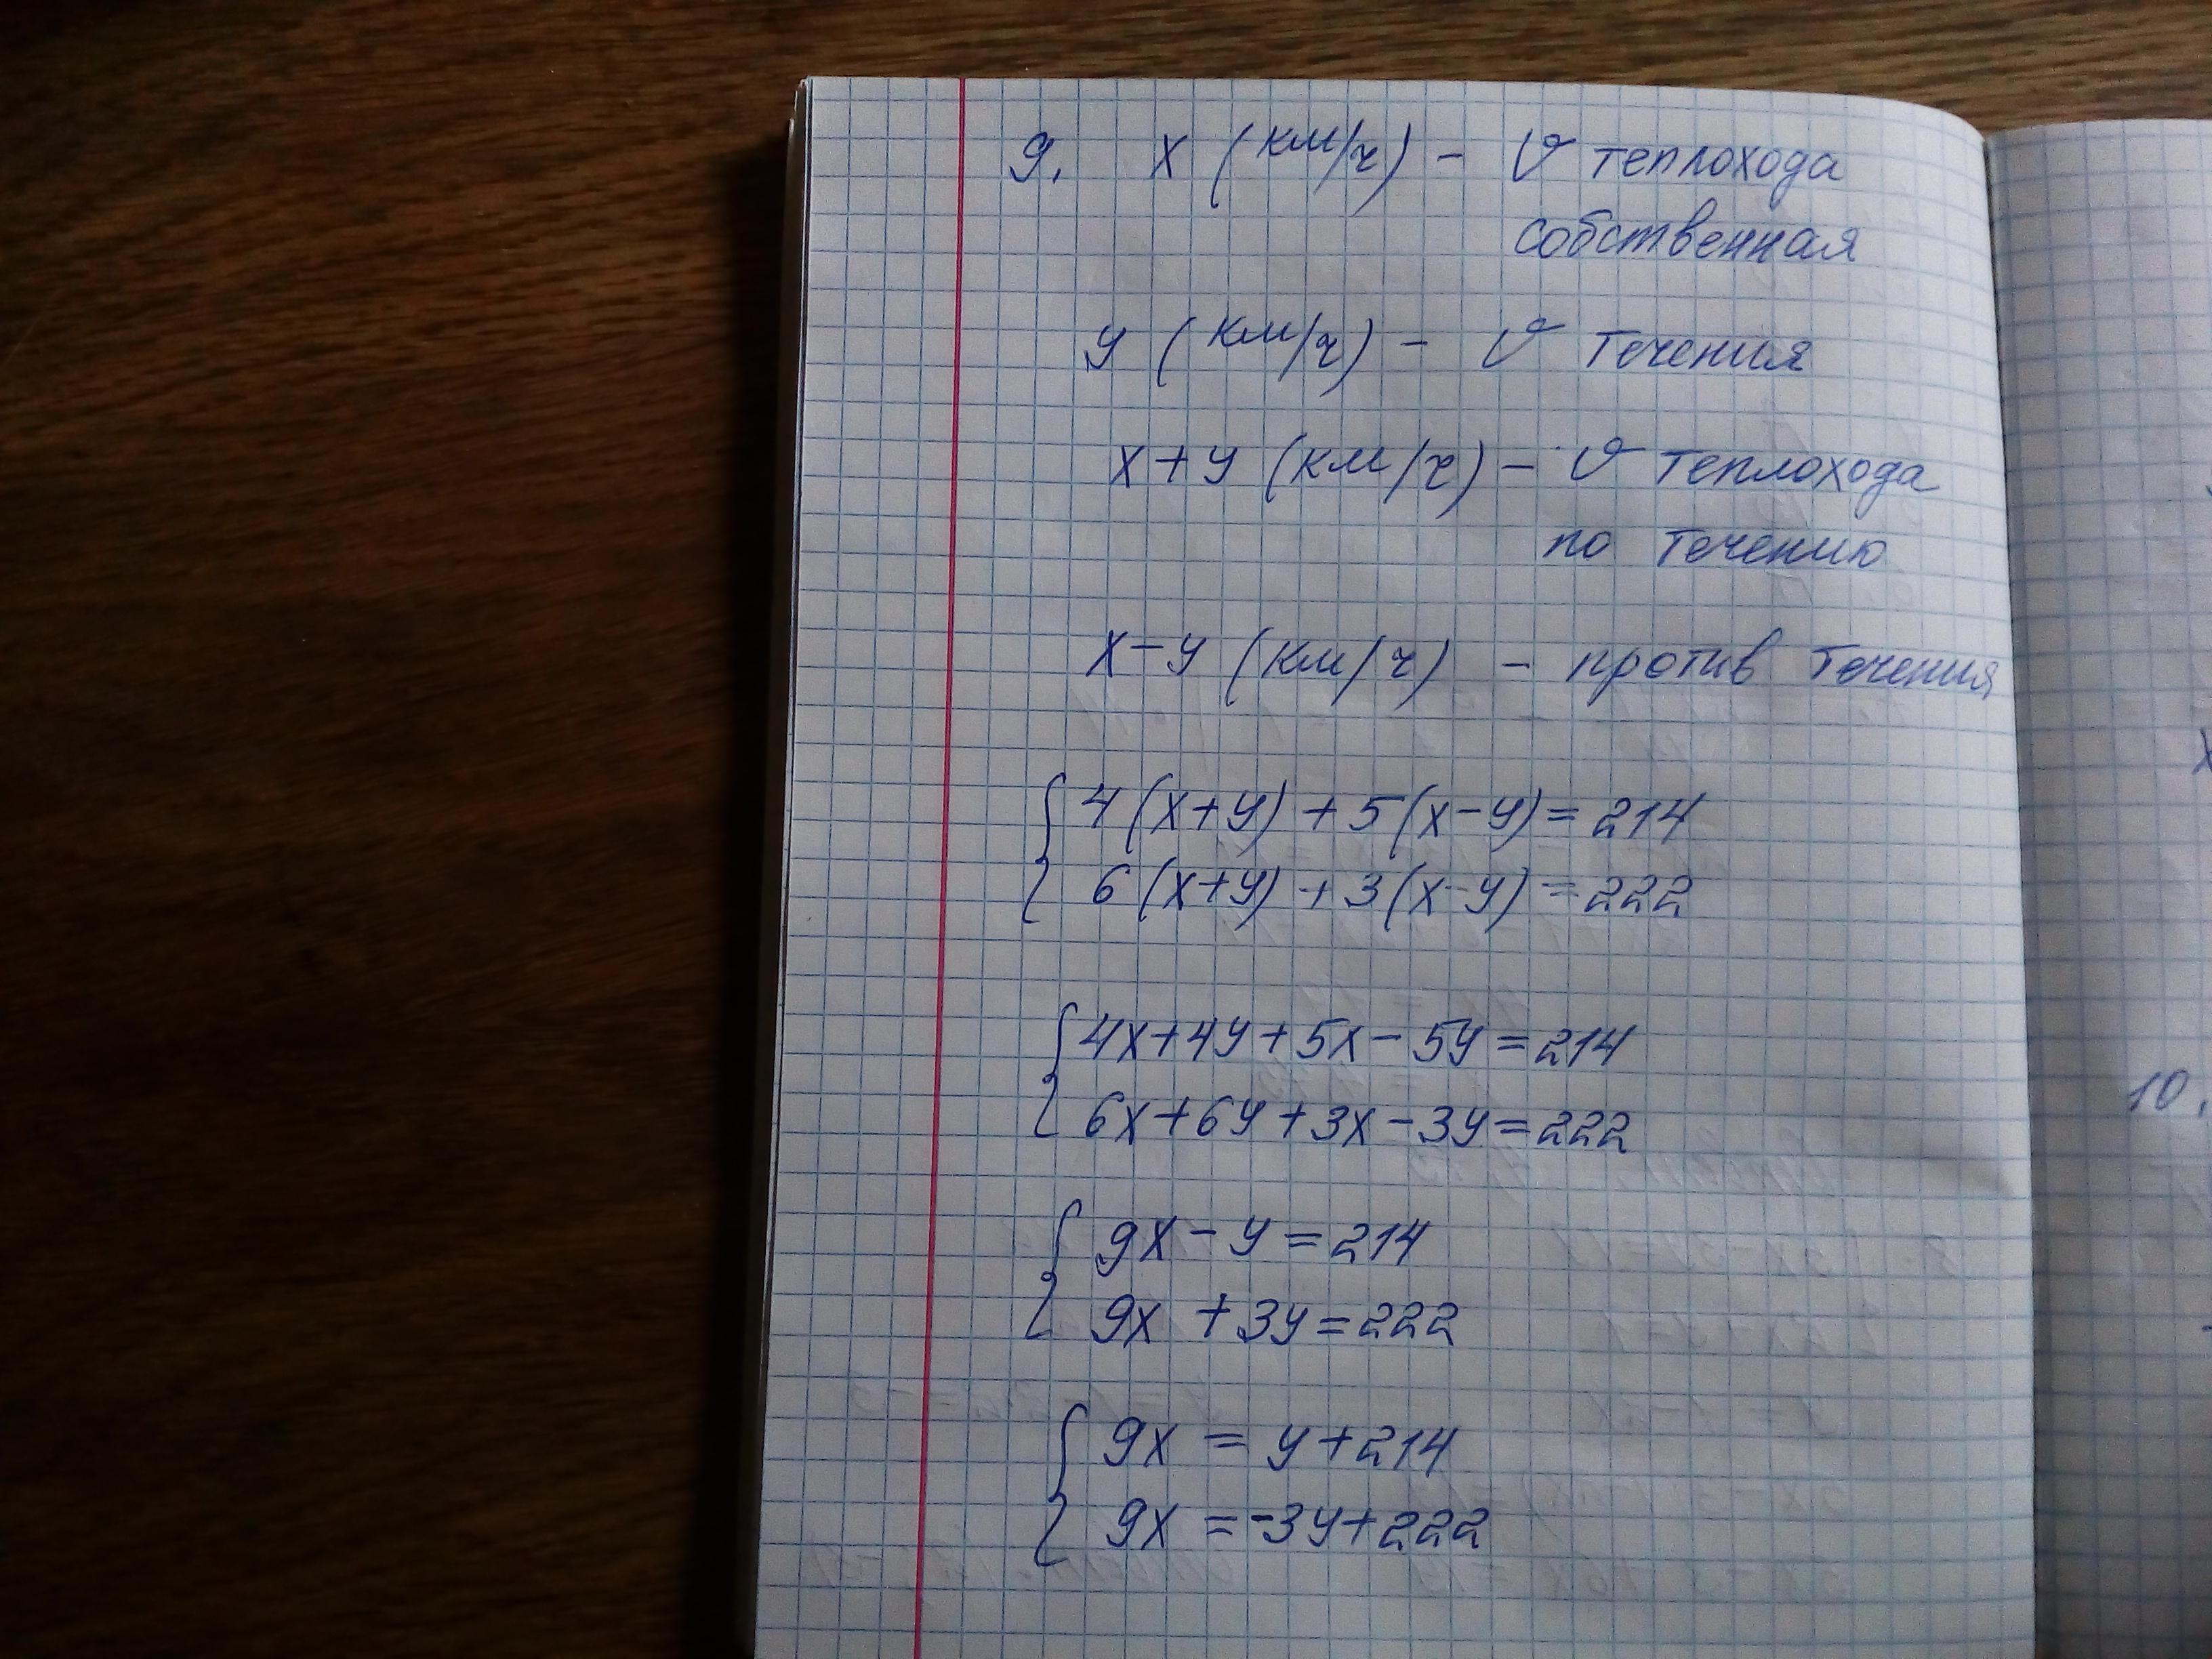 9. x (км/ч) - v теплохода
собственная
y (км/ч) - v течения
x+y (км/ч) - v теплохода
по течению
x-y (км/ч) - против течения
4(x+y)+5(x-y)=214
6(x+y)+3(x-y)=222
4x+4y+5x-5y=214
6x+6y+3x-3y=222
9x-y=214
9x+3y=222
9x=y+214
9x=-3y+222
10.